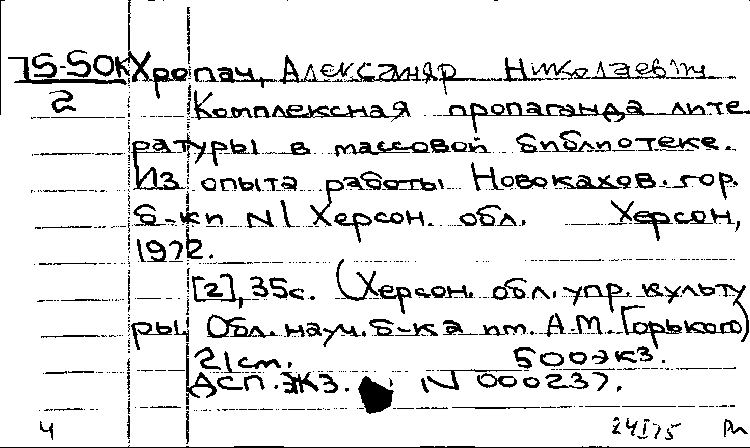 75-50к Хропач, Александр Николаевич
2 Комплексная пропаганда лите
ратуры в массовой библиотеке.
Из опыта работы Новокахов. гор.
б-ки N1 Херсон. обл. Херсон,
1972.
[2], 35с. (Херсон. обл. упр. культу
ры. Обл. науч. б-ка им. А.М. Горького)
21см. 500экз.
ДСП. ЭКЗ. N 000237.
4 24I75